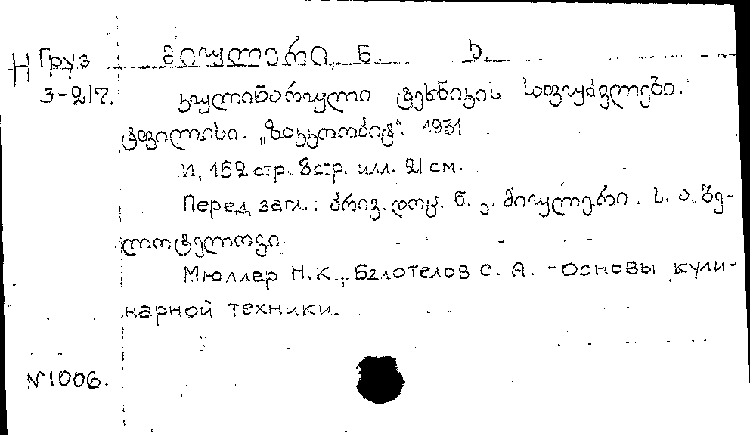 Груз მიულერი ნ. ს.
3-217. კულინარული ტეხნიკის საფუძვლები.
ტფილისი. „ზაკკოობიტ“. 1931
И, 152 стр. 8 стр. илл. 21 см.
Перед загл.: პრივ. დოც. ნ. კ. მიულერი. ს. ა. ბე-
ლოტელოვი
Мюллер Н.К., Белотелов С. А. - Основы кули-
нарной техники.
№1006.